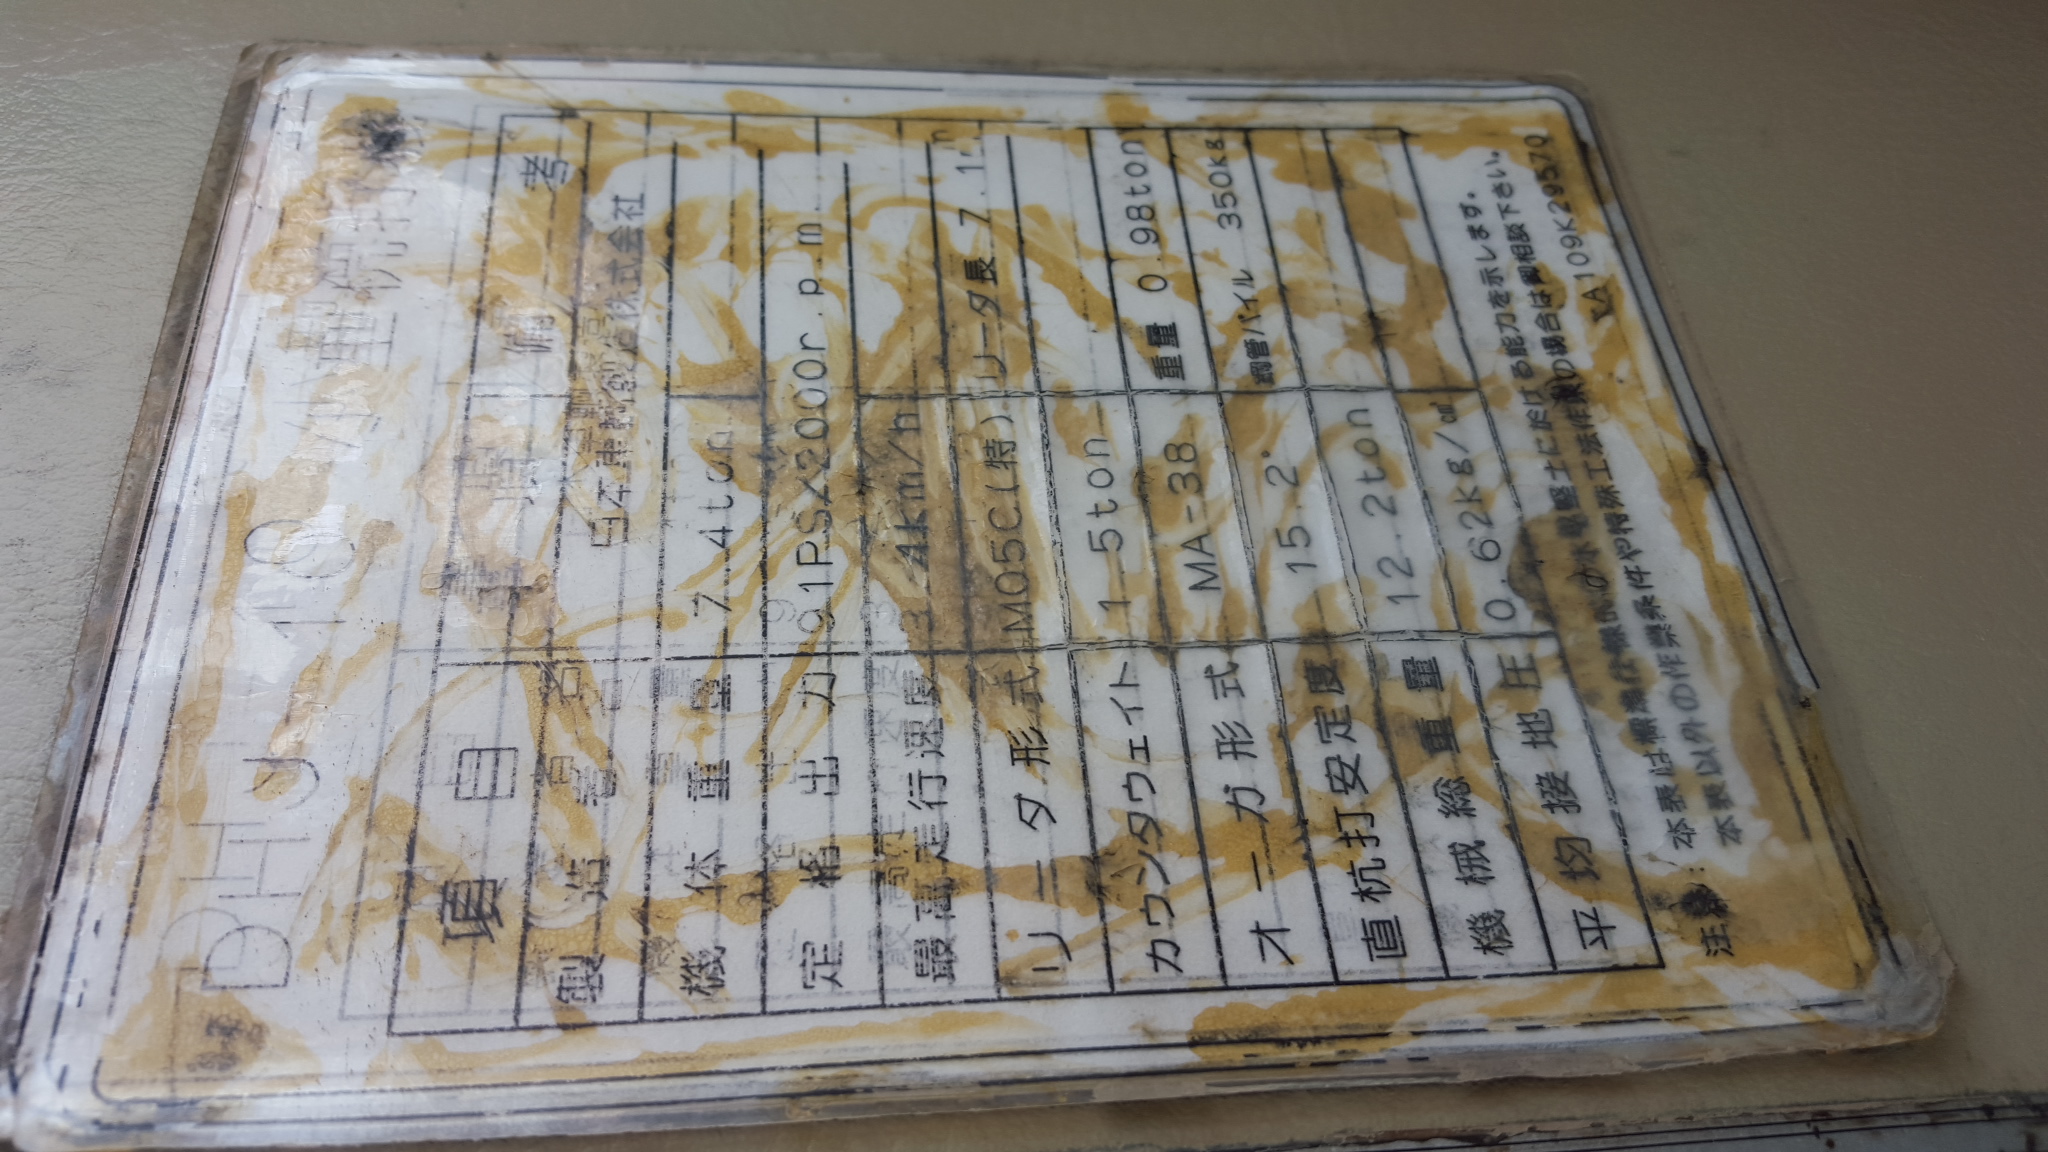 DHJ-10 小型杭打機
項目 諸元 備考
製造者名 日本車輌製造株式会社
機体重量 7.4ton
定格出力 91PS/2000r.p.m
最高走行速度 3.4km/h
リーダ形式 M05C(特) リーダ長 7.1m
カウンタウェイト 1.5ton 重量 0.98ton
オーガ形式 MA-38 鋼管パイル 350kg
直杭打安定度 15.2°
機械総重量 12.2ton
平均接地圧 0.62kg/㎠
注意: 本表は水平堅土に於ける能力を示します。
本表以外の作業条件や特殊工法作業の場合は御相談下さい。
109K29570